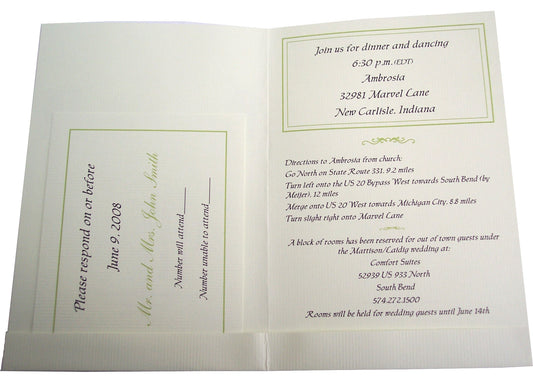 Please respond on or before
June 9, 2008
Mr. and Mrs. John Smith
Number will attend____
Number unable to attend____
Join us for dinner and dancing
6:30 p.m. (EDT)
Ambrosia
32981 Marvel Lane
New Carlisle, Indiana
Directions to Ambrosia from church:
Go North on State Route 331, 9.2 miles
Turn left onto the US 20 Bypass West towards South Bend (by
Meijer), 12 miles
Merge onto US 20 West towards Michigan City, 8.8 miles
Turn slight right onto Marvel Lane
A block of rooms has been reserved for out of town guests under
the Mattison/Laidig wedding at:
Comfort Suites
52939 US 933 North
South Bend
574.272.1500
Rooms will be held for wedding guests until June 14th